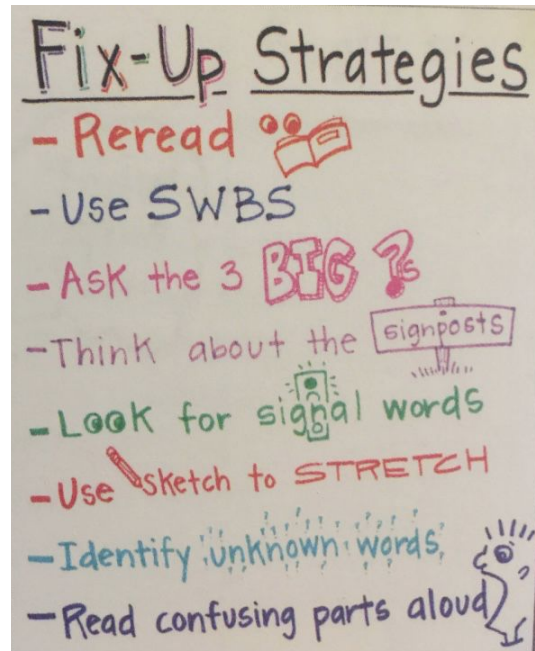 Fix-Up Strategies
- Reread
- Use SWBS
- Ask the 3 BIG ?s
- Think about the signposts
- Look for signal words
- Use sketch to STRETCH
- Identify unknown words
- Read confusing parts aloud